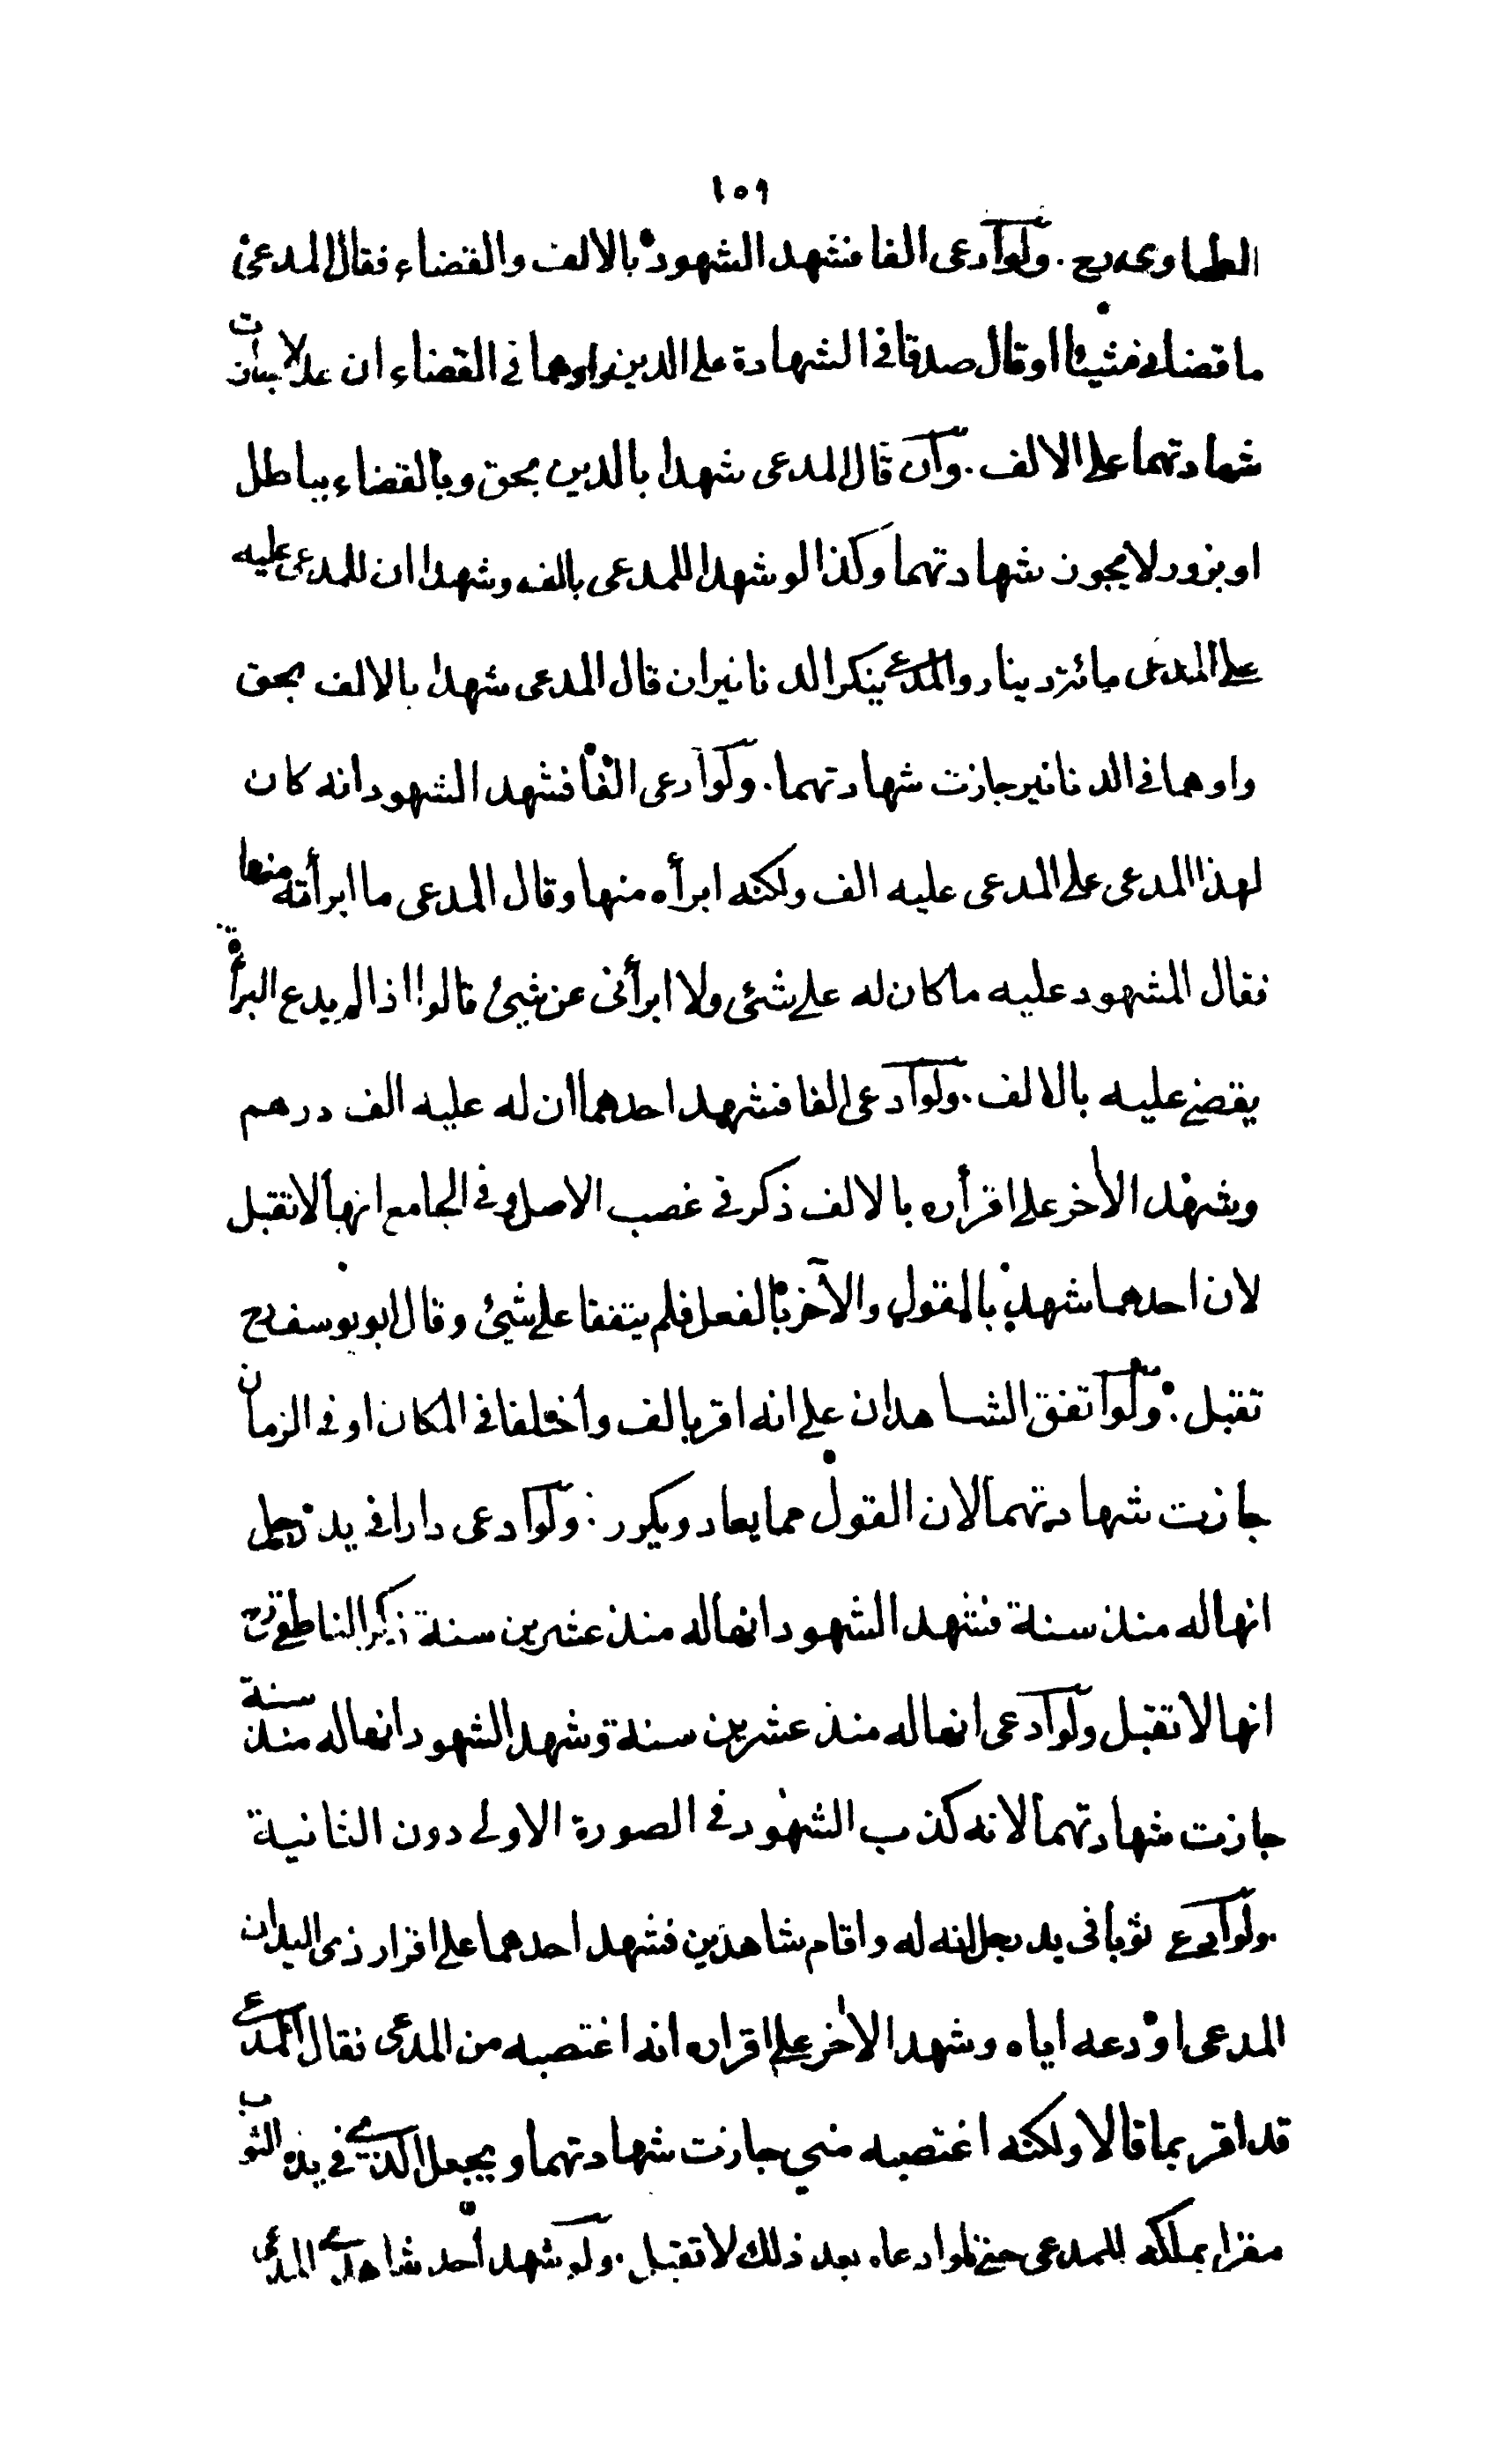 ١٥٩
الطحاوى رح . ولو ادعى الفا فشهد الشهود بالالف والقضاء فقال المدعى
ما قضانى شيئا او قال صدقا فى الشهادة على الدين واوهما فى القضاء ان عدلا جازت
شهادتهما على الالف . وان قال المدعى شهدا بالدين بحق وبالقضاء بباطل
او بزور لا يجوز شهادتهما وكذا لو شهدا للمدعى بالف وشهدا ان للمدعى عليه
على المدعى مائة دينار والمدعى ينكر الدنانير ان قال المدعى شهدا بالالف بحق
واوهما فى الدنانير جازت شهادتهما . ولو ادعى الفا فشهد الشهود انه كان
لهذا المدعى على المدعى عليه الف ولكنه ابرأه منها وقال المدعى ما ابرأته منها
فقال المشهود عليه ما كان له على شئ ولا ابرأنى عن شئ قالوا اذا لم يدع البرأة
يقضى عليه بالالف . ولو ادعى الفا فشهد احدهما ان له عليه الف درهم
وشهد الاخر على اقراره بالالف ذكر فى غصب الاصل وفى الجامع انها لا تقبل
لان احدهما شهد بالقول والآخر بالفعل فلم يتفقا على شئ وقال ابو يوسف رح
تقبل : ولو اتفق الشاهدان على انه اقر بالف واختلفا فى المكان او فى الزمان
جازت شهادتهما لان القول مما يعاد ويكرر : ولو ادعى دارا فى يد رجل
انها له منذ سنة فشهد الشهود انها له منذ عشرين سنة ذكر الناطفى رح
انها لا تقبل ولو ادعى انها له منذ عشرين سنة وشهد الشهود انها له منذ سنة
جازت شهادتهما لانه كذب الشهود فى الصورة الاولى دون الثانية
. ولو ادعى ثوبا فى يد رجل انه له واقام شاهدين فشهد احدهما على اقرار ذى اليد ان
المدعى اودعه اياه وشهد الاخر على اقراره انه اغتصبه من المدعى فقال المدعى
قد اقر بما قالا ولكنه اغتصبه منى جازت شهادتهما ويجعل الذى فى يده الثوب
مقرا بملكه للمدعى حتى لو ادعاه بعد ذلك لا تقبل . ولو شهد احد شاهدى المدعى